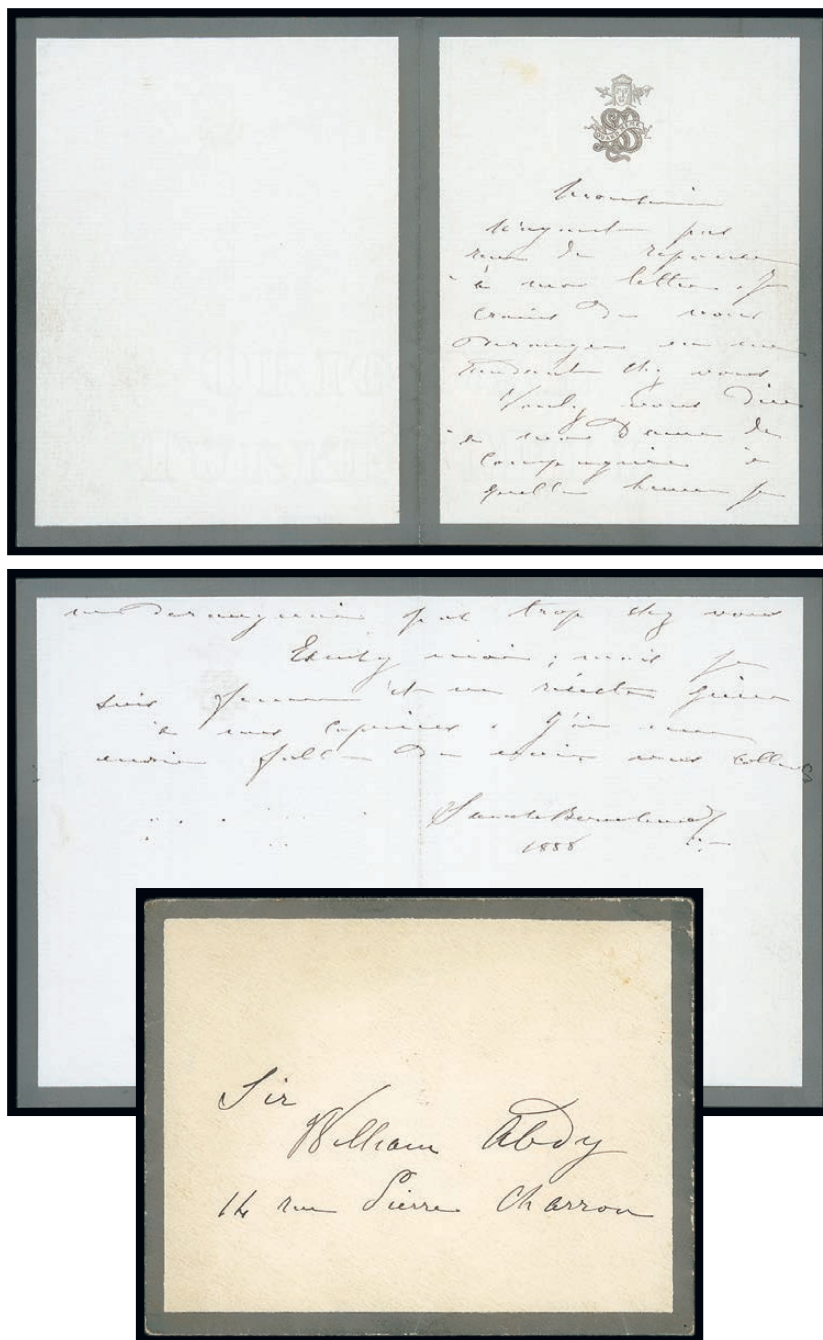 QUAND MEME
Monsieur
N'ayant pas
reçu de reponse
à ma lettre, je
crains de vous
deranger en me
rendant chez vous
Voulez vous dire
à ma Dame de
compagnie à
quelle heure je
ne derangerais pas trop chez vous
Excusez moi ; mais je
suis femme et ne résiste guère
à mes caprices. J'ai une
envie folle de voir vos coll
Sarah Bernhardt
1888
Sir
William Abdy
14 rue Pierre Charron